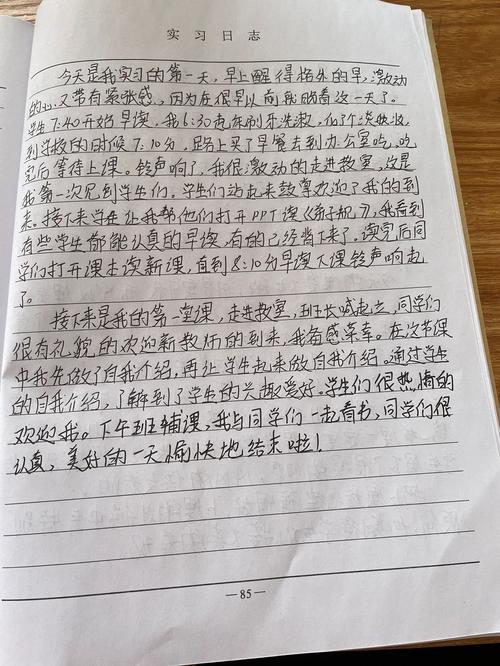 实习日志
今天是我实习的第一天，早上醒得格外的早，激动
的心又带有紧张感，因为在很早以前就盼着这一天了。
学生7:40开始早读，我6:30起床刷牙洗漱，化了个淡妆收
到学校的时候7:10分，路上买了早餐去到办公室吃，吃
完后等待上课。铃声响了，我很激动的走进教室，这是
我第一次见到学生们。学生们站起来鼓掌欢迎了我的到
来。接下来学生让我帮他们打开PPT读《弟子规》，我看到
有些学生都能认真的早读，有的已经背下来了。读完后同
学们打开课本读新课，直到8:10分早读下课铃声响起
了。
接下来是我的第一堂课，走进教室，班长喊起立，同学们
很有礼貌的欢迎新教师的到来，我备感荣幸。在这节课
中我先做了自我介绍，再让学生起来做自我介绍。通过学生
的自我介绍，了解到了学生的兴趣爱好。学生们很热情的
欢迎我。下午班辅课，我与同学们一起看书，同学们很
认真，美好的一天愉快地结束啦！
—85—